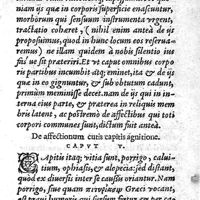 niam ijs quæ in corporis superficie enascuntur,
morborum qui sensuum instrumenta urgent,
tractatio cohæret, (nihil enim antea de ijs
proposuimus, quod in hunc locum eos reserua-
remus) ne illam quidem à nobis silentio ius
fuit us se præteriri. Et ut caput omnibus corpo
ris partibus incipit, &c. at enim, ita de ijs
quæ in eo gignuntur, & sub obtutum cadunt,
primum meminisse decet. nam de ijs quæ in in-
terna eius parte, & præterea in reliquis mem
bris latent, ac postremò de affectibus qui toti
corpori communes sunt, dictum fuit anteà.
De affectionum cutis capitis agnitione.
CAPVT V.
Capitis itaq; vitia sunt, porrigo, calui-
tium, ophiasis, & alopecia: sed distant,
quòd ex diuersis inter se caussis oriantur. Nam
porrigo, siue quam πιτυρίασιν Græci vocant,